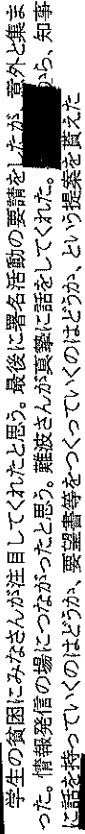 学生の貧困にみなさんが注目してくれたと思う。最後に署名活動の要請をしたが、意外と集ま
った。情報発信の場につながったと思う。難波さんが真摯に話をしてくれた。から、知事
に話を持っていくのはどうか、要望書等をつくっていくのはどうか、という提案を貰えた